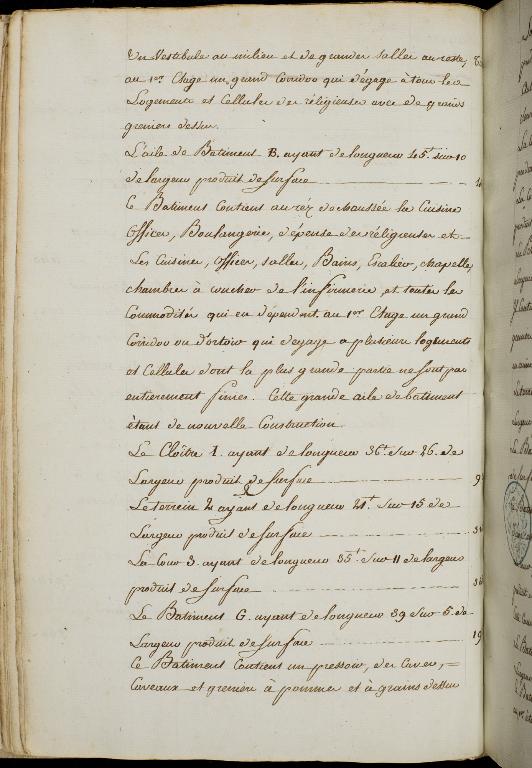 un Vestibule au milieu et de grandes salles au reste,
au 1er Etage un grand Corridor qui dégage à tous les
Logements et Cellules des réligieuses avec de grands
greniers dessus.
L'aile de Batiment B. ayant de longueur 45t. sur 10
de largeur produit de surface
Ce Batiment Contient au réz de chaussée les Cuisine
Offices, Boulangerie, dépense des réligieuses et
Les Cuisines, Offices, salles, Bains, Escalier, chapelle,
chambres à coucher de l'infirmerie, et toutes les
Commodités qui en dépendent au 1er Etage un grand
Corridor ou Dortoir qui dégage a plusieurs logements
et Cellules dont la plus grande partie ne sont pas
entierement finies. Cette grande aile de batiment
étant de nouvelle Construction.
Le Cloître 1. ayant de longueur 36t. sur 26. de
Largeur produit de surface
Le terrein 2 ayant de longueur 21t. sur 15 de
Largeur produit de surface
La Cour 3. ayant de longueur 35t. sur 11 de largeur
produit de surface
Le Batiment G. ayant de longueur 39 sur 5. de
Largeur produit de surface
Ce Batiment Contient un pressoir, des Caves, =
Caveaux et greniers à pommes et à grains dessus